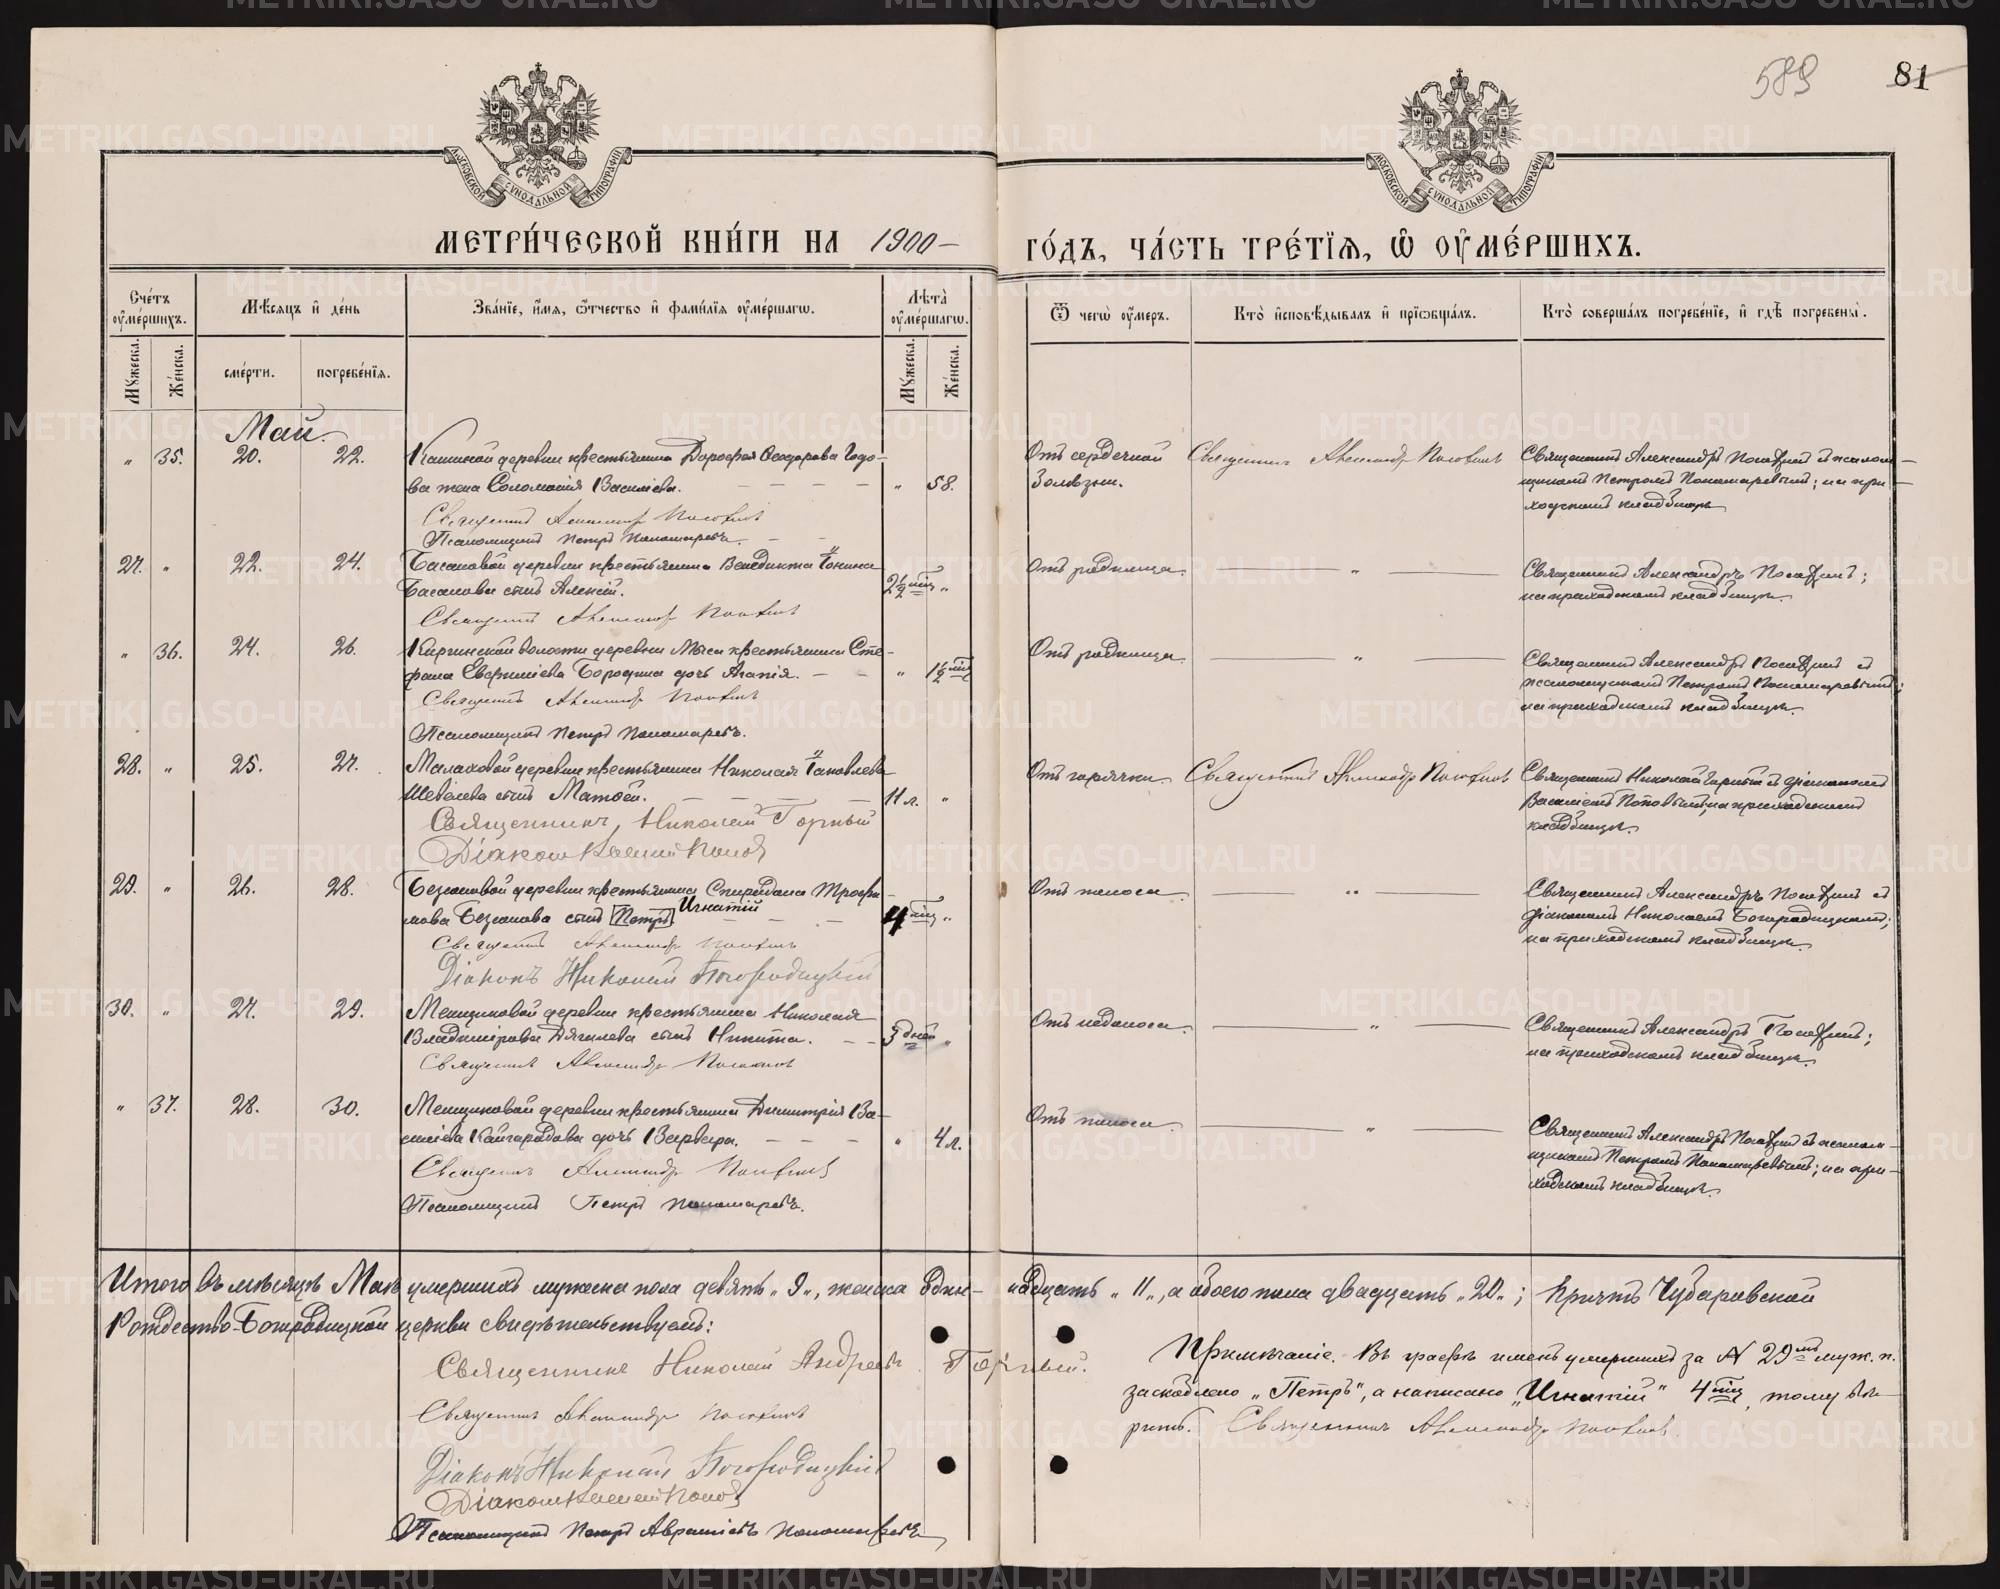 589 81
МОСКОВСКОЙ СУНОДАЛЬНОЙ ТИПОГРАФІИ
МОСКОВСКОЙ СУНОДАЛЬНОЙ ТИПОГРАФІИ
МЕТРИ́ЧЕСКОЙ КНИ́ГИ НА 1900 – ГО́ДЪ, ЧА́СТЬ ТРЕ́ТІЯ, Ѽ ОУ҆МЕ́РШИХЪ.
Сче́тъ оу҆ме́ршихъ. Мѣ́сяцъ и҆ де́нь Зва́нїе, и҆́мя, ѻ҆́тчество и҆ фами́лїя оу҆ме́ршагѡ. Лѣ́та оу҆ме́ршагѡ.
Ѿ чегѡ̀ оу҆́меръ. Кто̀ и҆сповѣ́дывалъ и҆ прїѡбща́лъ. Кто̀ соверша́лъ погребе́нїе, и҆ гдѣ̀ погребены̀.
Мꙋ́жеска. Же́нска. сме́рти. погребе́нїя. Мꙋ́жеска. Же́нска.
Май.
" 35. 20. 22. Кашиной деревни крестьянина Дорофея Ѳеодорова Годо-
ва жена Соломонія Васильева. " 58.
Священникъ Александръ
Псаломщикъ Петръ Пономаревъ.
Отъ сердечной
болѣзни.
Священникъ Александръ
Священникъ Александръ съ псалом-
щикомъ Петромъ Пономаревымъ; на при-
ходскомъ кладбищѣ
27. " 22. 24. деревни крестьянина Венедикта
сынъ Алексій. 2½ мѣс "
Священникъ Александръ
Отъ родимца. "
Священникъ Александръ
на приходскомъ кладбищѣ.
" 36. 24. 26. Киргинской волости деревни Мыса крестьянина Сте-
фана Бородина дочь Агапія. " 1½ мѣс
Священникъ Александръ
Псаломщикъ Петръ Пономаревъ.
Отъ родимца. "
Священникъ Александръ съ
псаломщикомъ Петромъ Пономаревымъ;
на приходскомъ кладбищѣ.
28. " 25. 27. Малаховой деревни крестьянина Николая Іаковлева
Шевелева сынъ Матѳей. 11 л. "
Священникъ, Николай Горный
Діаконъ Василій Поповъ
Отъ горячки.
Священникъ Александръ
Священникъ Николай Горный съ діакономъ
Василіемъ Поповымъ; на приходскомъ
кладбищѣ.
29. " 26. 28. деревни крестьянина Спиридона Трофи-
мова сынъ [Петръ] Игнатій 4 мѣс "
Священникъ Александръ
Діаконъ Николай Богородицкій
Отъ поноса. "
Священникъ Александръ съ
діакономъ Николаемъ Богородицкимъ;
на приходскомъ кладбищѣ.
30. " 27. 29. Менщиковой деревни крестьянина Николая
Владимірова Дягилева сынъ Никита. 3 дней "
Священникъ Александръ
Отъ недоноса. "
Священникъ Александръ
на приходскомъ кладбищѣ.
" 37. 28. 30. Менщиковой деревни крестьянина Димитрія Ва-
силіева Кайгородова дочь Варвара. " 4 л.
Священникъ Александръ
Псаломщикъ Петръ Пономаревъ.
Отъ поноса. "
Священникъ Александръ съ псалом-
щикомъ Петромъ Пономаревымъ; на при-
ходскомъ кладбищѣ.
Итого въ мѣсяцѣ Маѣ умершихъ мужеска пола девять „9„, женска один-надцать „11„, а обоего пола двадцать „20„; Причтъ Чубаровской
Рождество-Богородицкой церкви свидѣтельствуетъ:
Священникъ Николай Андреевъ Горный.
Священникъ Александръ
Діаконъ Николай Богородицкій
Діаконъ Василій Поповъ
Псаломщикъ Петръ Пономаревъ
Примѣчаніе. Въ графѣ именъ умершихъ за № 29мъ муж. п.
заскоблено „Петръ", а написано „Игнатій" 4 мѣс, тому вѣ-
рить. Священникъ Александръ
METRIKI.GASO-URAL.RU